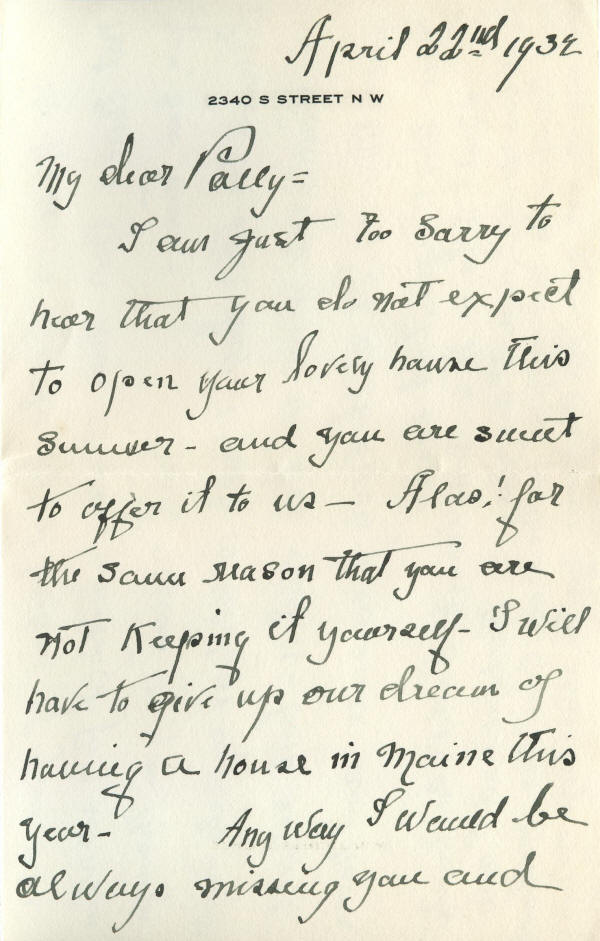 April 22nd 1932
2340 S STREET N W
My dear Polly =
I am just too sorry to
hear that you do not expect
to open your lovely house this
summer - and you are sweet
to offer it to us - Alas! for
the same reason that you are
not keeping it yourself - I will
have to give up our dream of
having a house in Maine this
year - Any way I would be
always missing you and